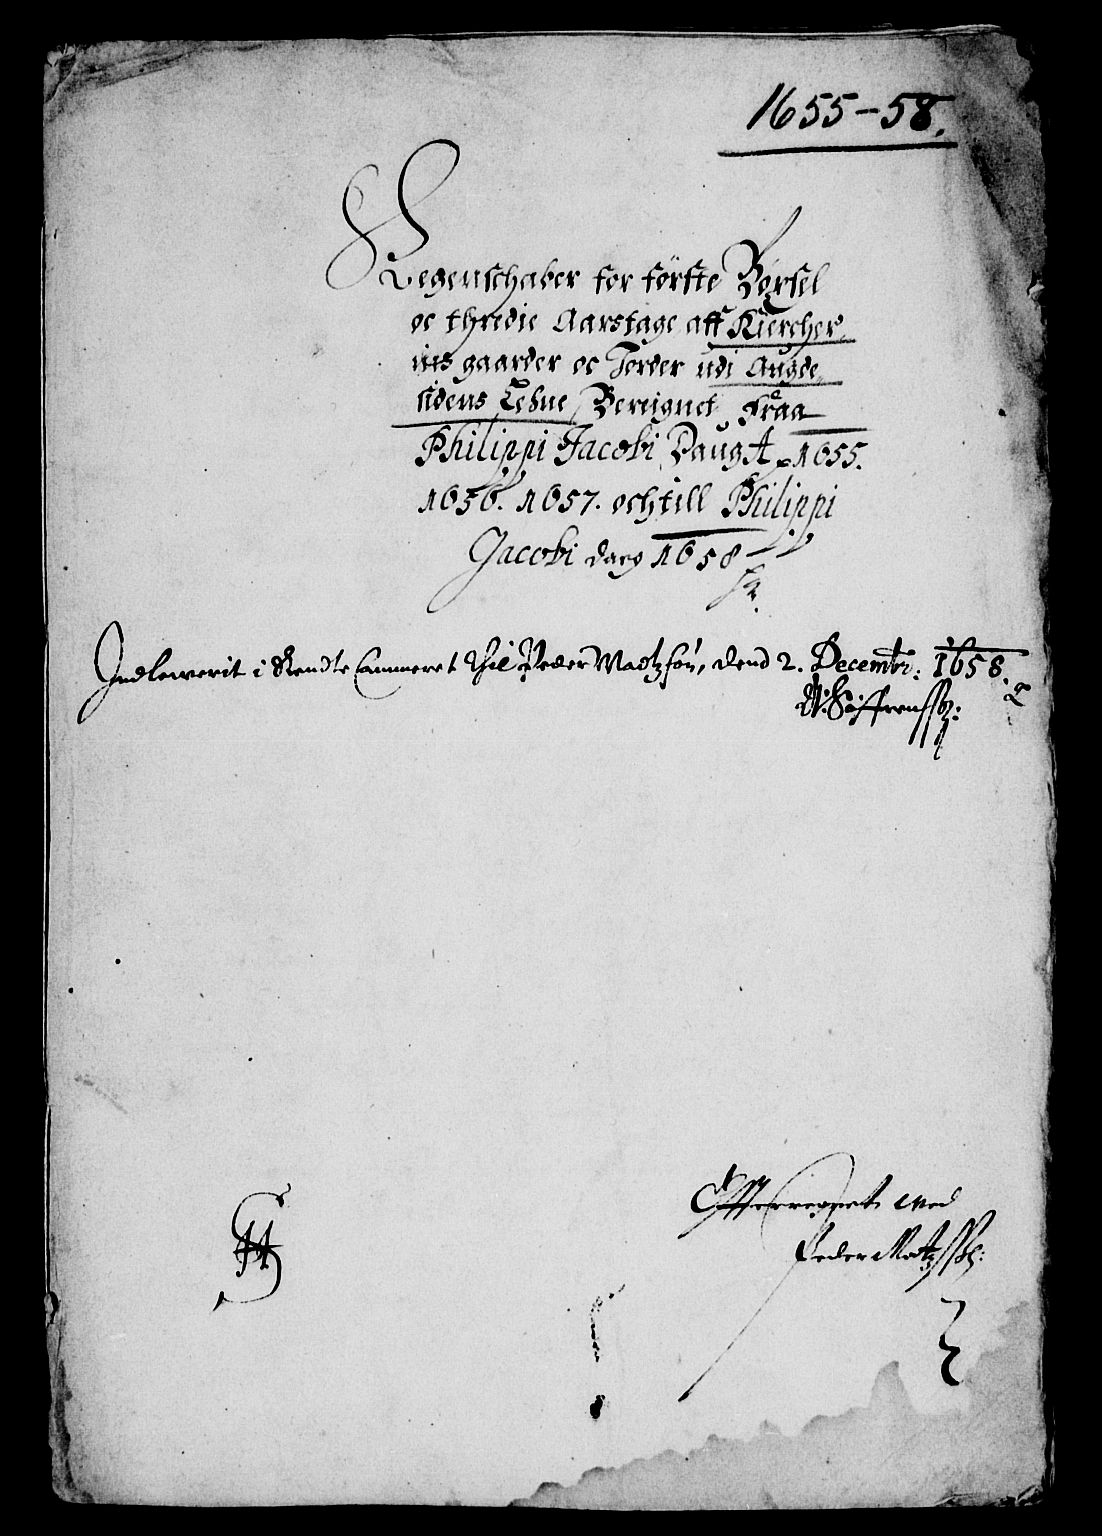 1655-58.
Regenschaber for förste Bøxsel
oc thredie Aarstage aff Kiercher¬
ins gaarder oc Jorder udi Augde¬
sidens Lehne, Bereignet fraa
Philippi Jacobi Daug A° 1655.
1656. 1657. och till Philippi
Jacobi daeg 1658
Indlewerit i Rendte Cammeret thil Peder Madtzsøn, dend 2. Decembr: 1658.
Søffrenssøn:
Offuerregnet med
Peder Madtzssøn: